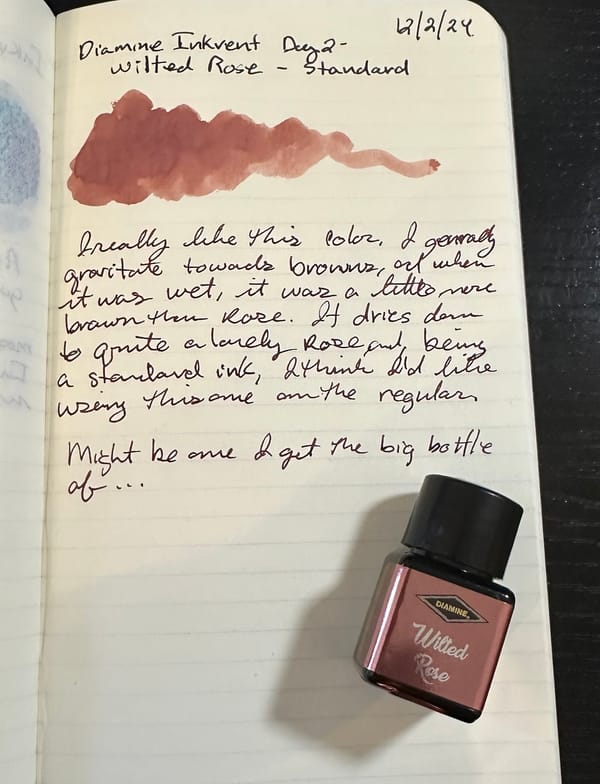 12/2/24
Diamine Inkvent Day 2-
Wilted Rose - Standard
I really like this color. I generally
gravitate towards browns, and when
it was wet, it was a little more
brown than Rose. It dries down
to quite a lovely Rose, and, being
a standard ink, I think I'd like
using this one on the regular.
Might be one I get the big bottle
of ...
DIAMINE
Wilted
Rose